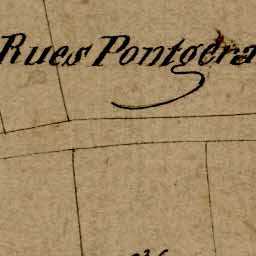 Rues Pontgéra